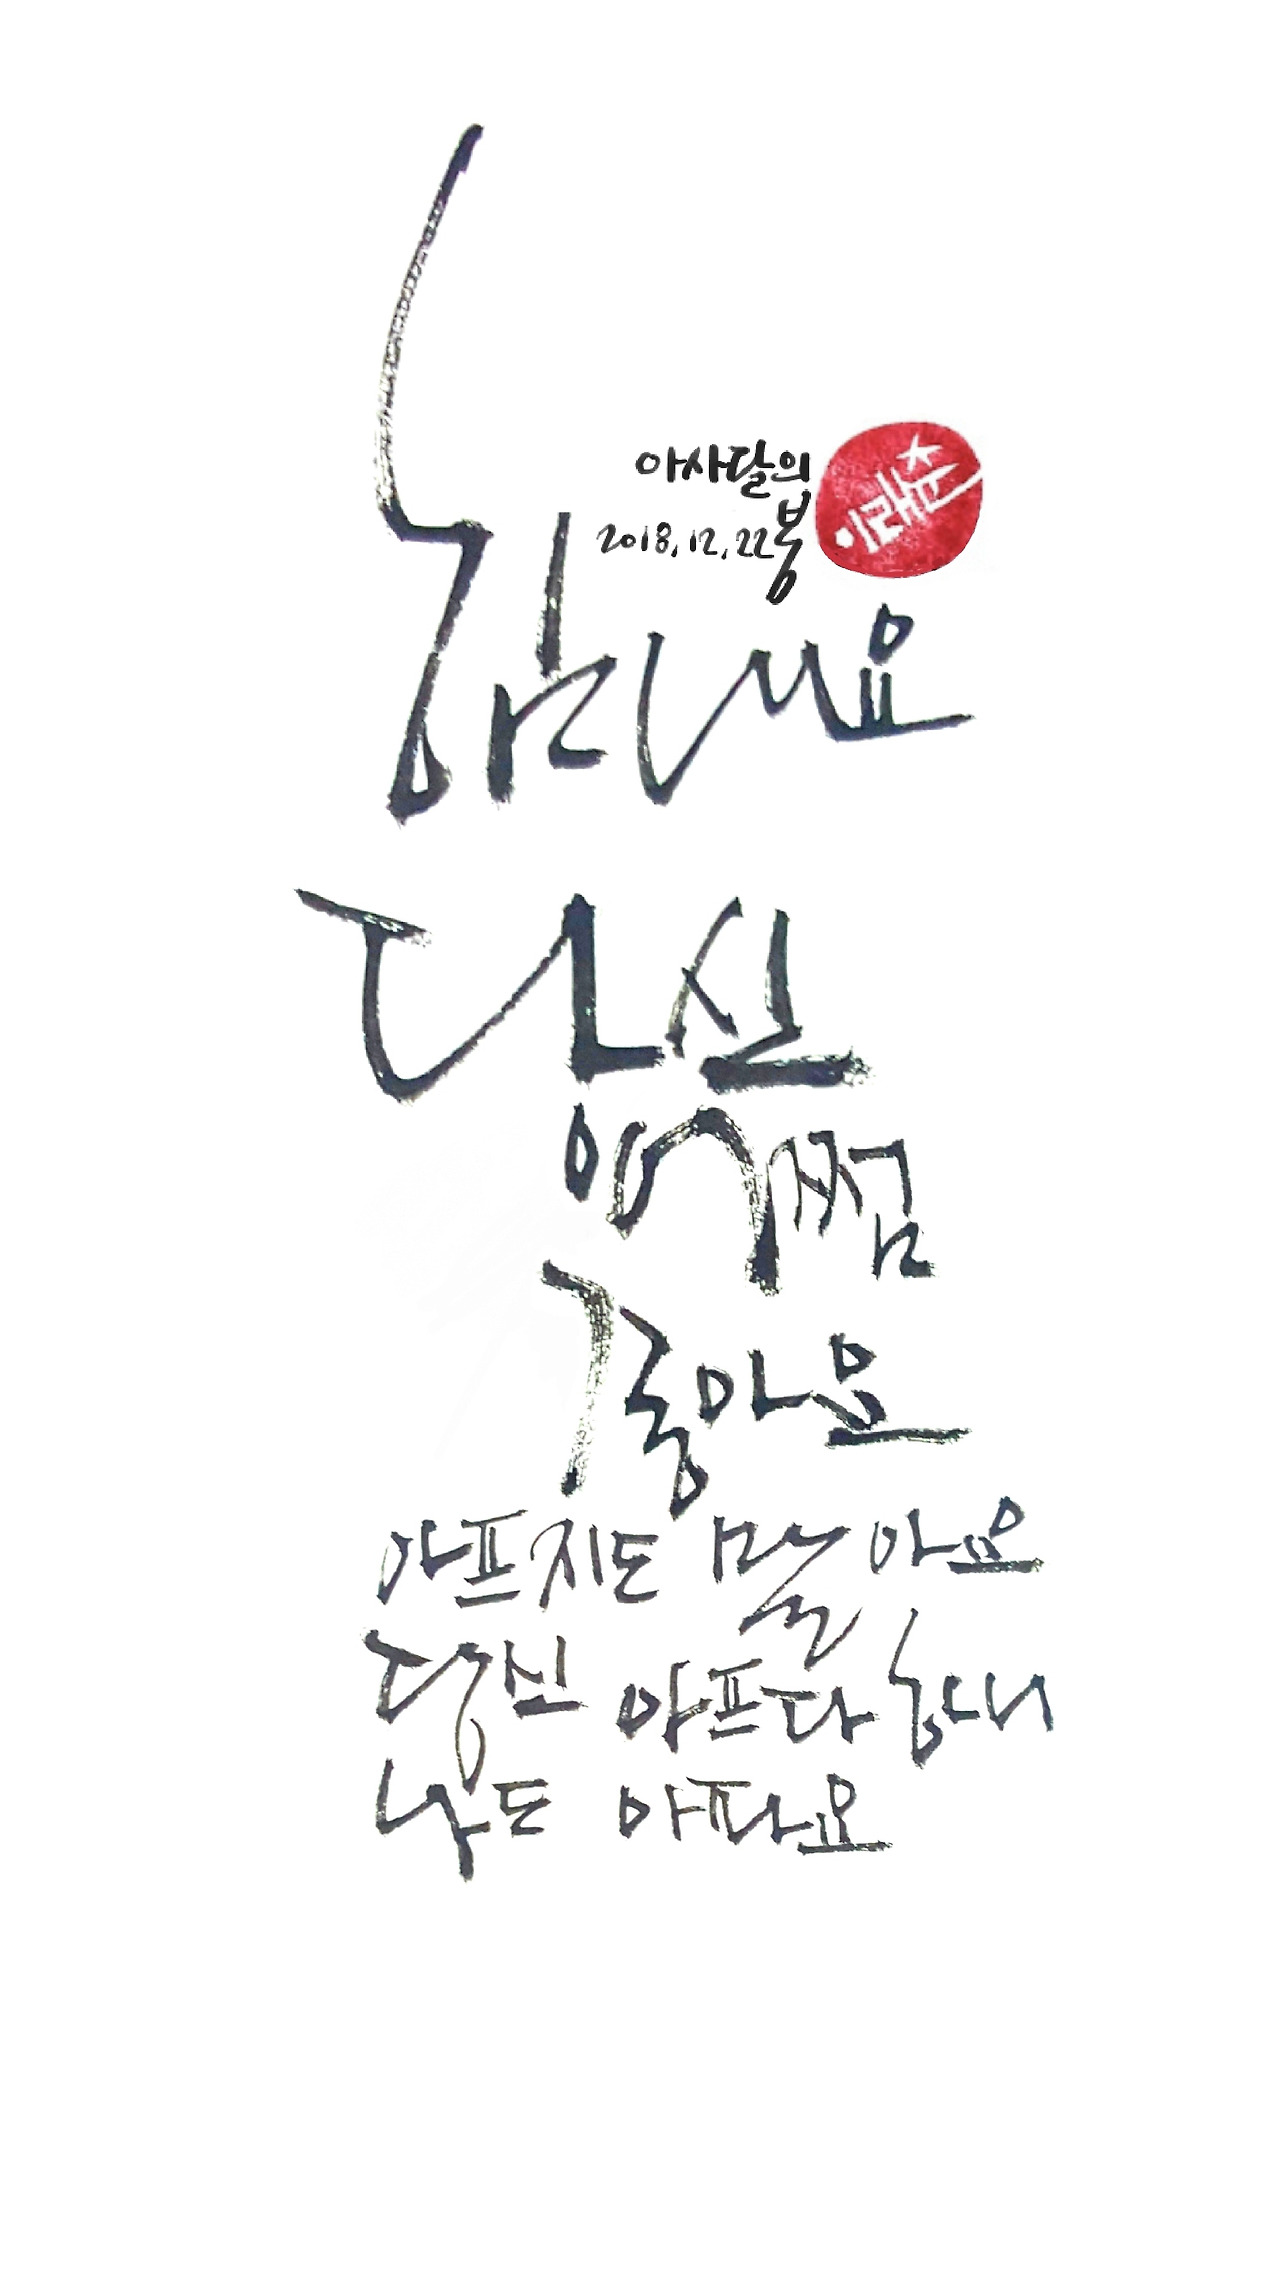 힘내요
아사달의
봉
2018.12.22
이래춘
당신
어쩜
좋아요
아프지도 말아요
당신 아프다하니
나도 아파요